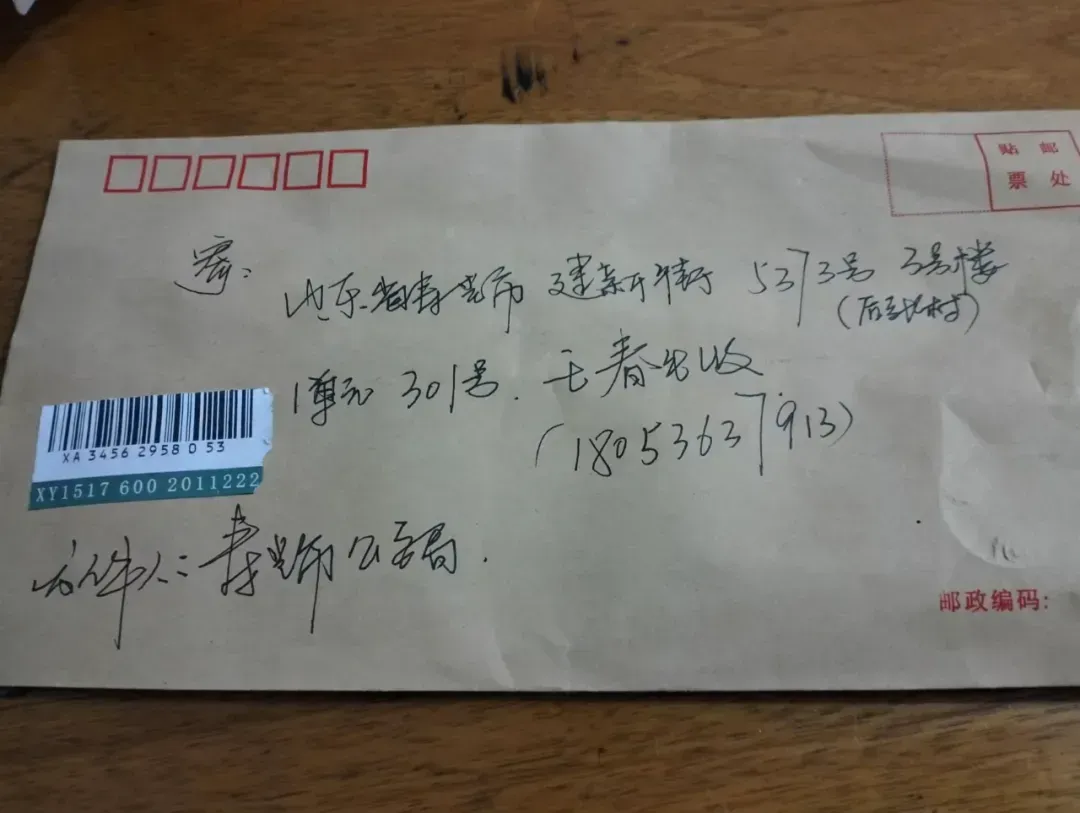 贴 邮
票 处
寄:
山东省寿光市 建新街 5373号 3号楼
(后 村)
1单元 301号. 王春 收
(18053637913)
XA 3456 2958 0 53
XY1517 600 2011222
件人: 寿光市公安局.
邮政编码: